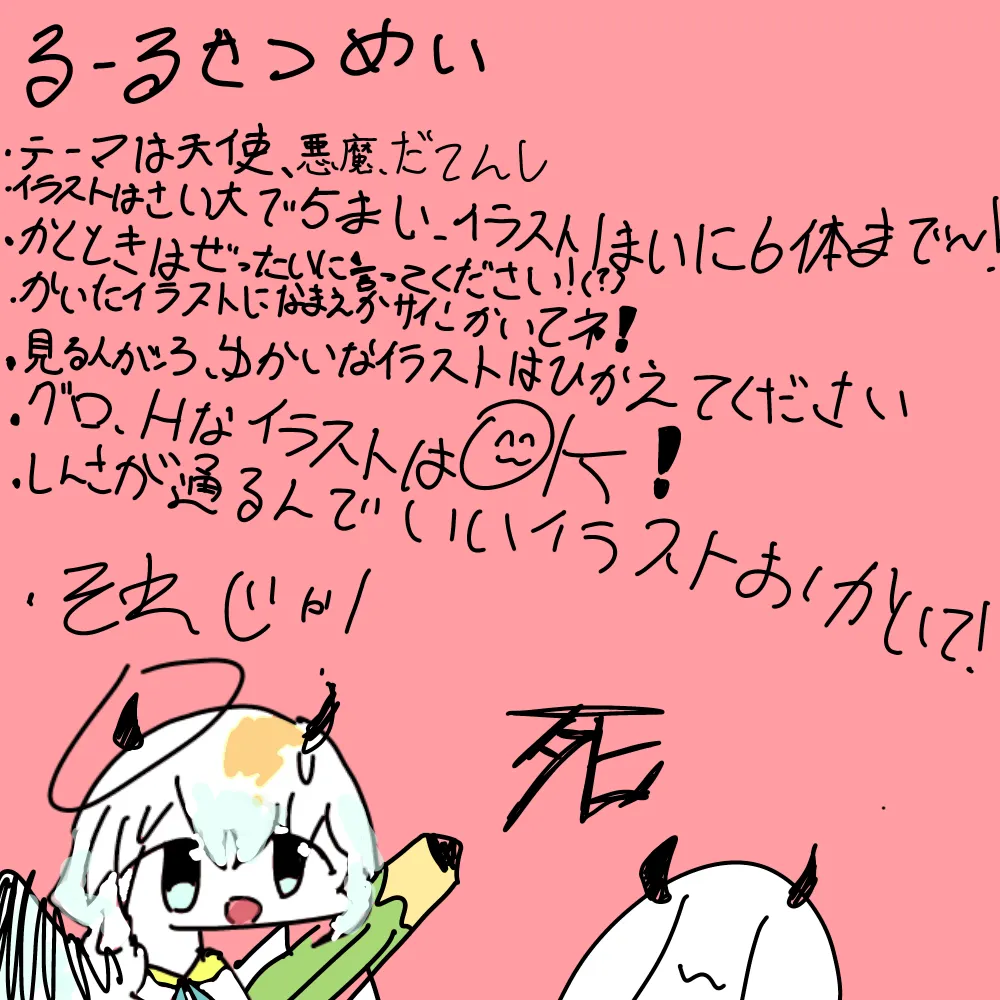 るーるせつめい
・テーマは天使、悪魔、だてんし
・イラストはさい大で5まい、イラスト1まいに6体まで〜!
・かくときはぜったいに言ってください!(?)
・かいたイラストになまえかサインかいてネ!
・見る人がふかいなイラストはひかえてください
・グロ、HなイラストはOK!
・しんさが通るんでいいイラストおまかとして!
・それじゃ
死